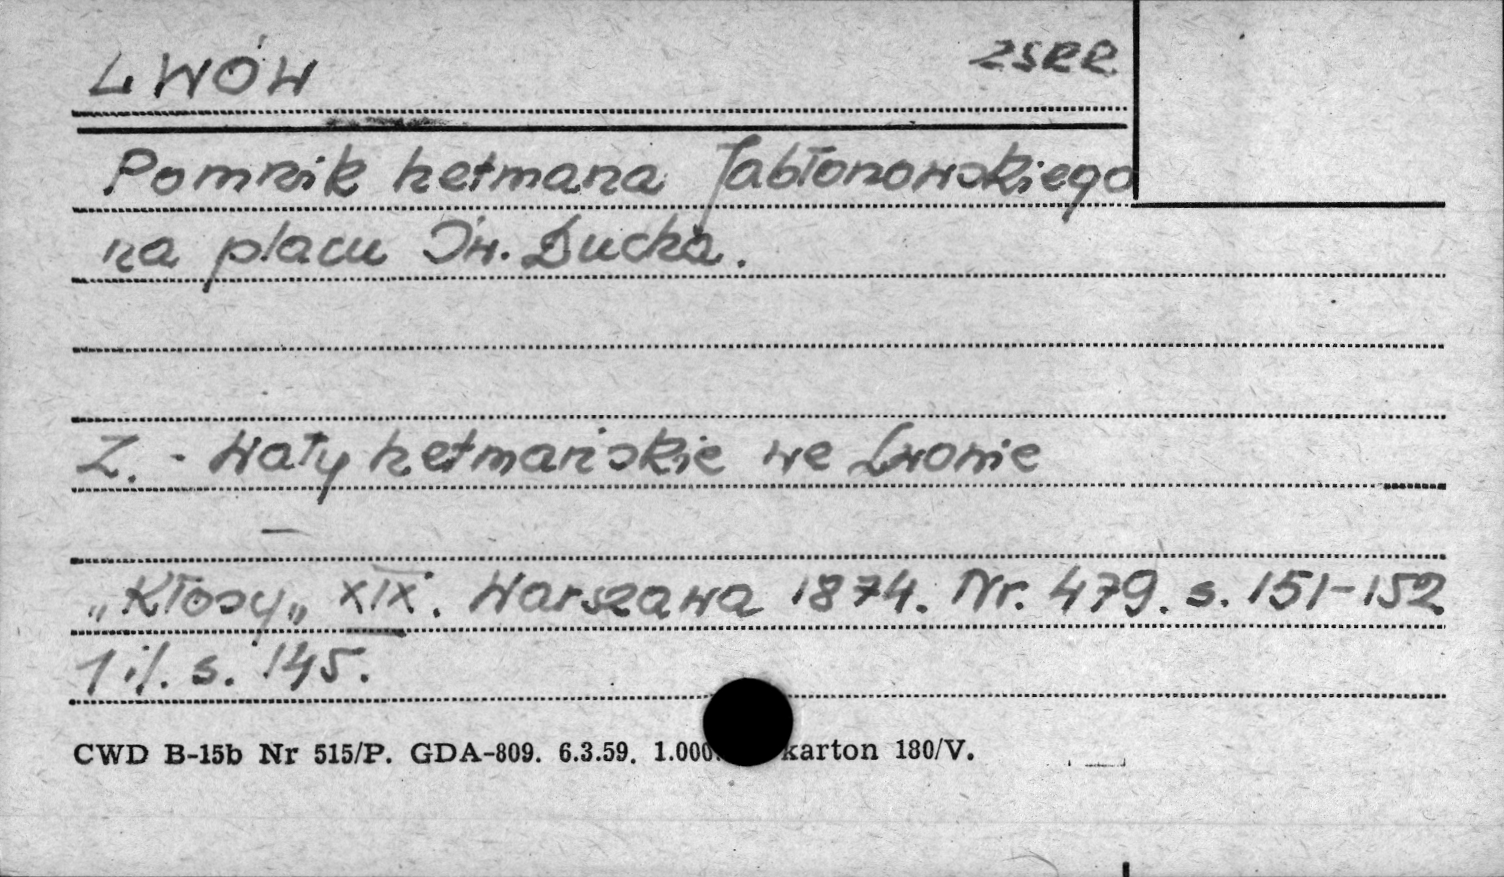 LWÓW ZSRR
Pomnik hetmana Jabłonowskiego
na placu Św. Ducha.
Z. - Wały hetmańskie we Lwowie
—
„Kłosy„ XIX. Warszawa 1874. Nr. 479. s. 151-152
1 il. s. 145.
CWD B-15b Nr 515/P. GDA-809. 6.3.59. 1.000. karton 180/V.